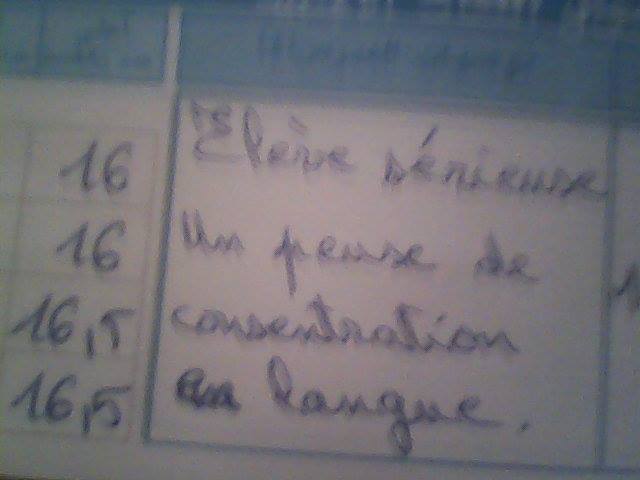 16 Elève sérieuse
16 Un peuse de
16,5 consentration
16,5 en langue.